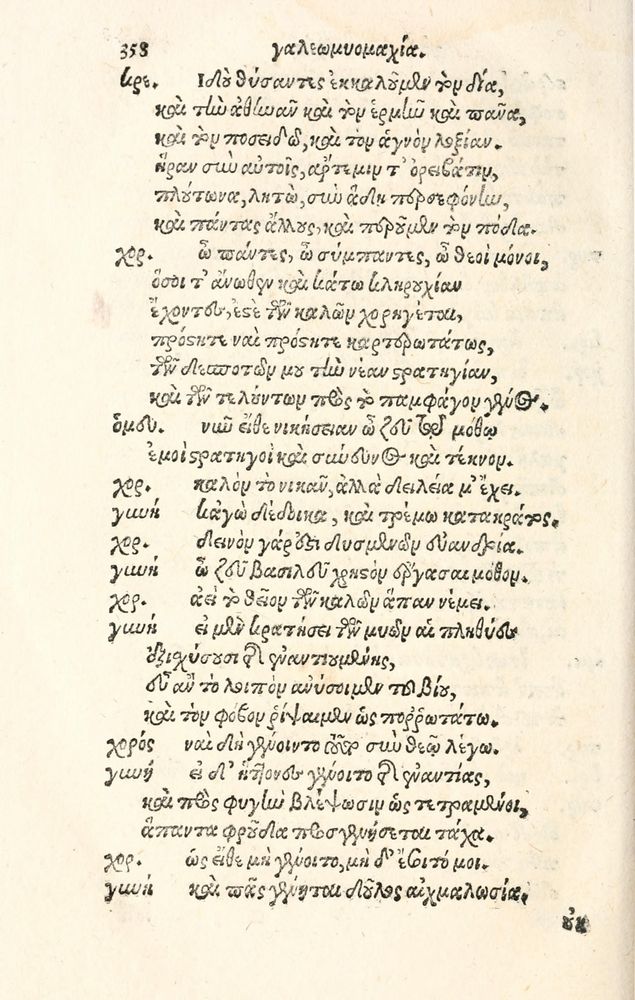 358 γαλεωμυομαχία.
κρε. Ἰδοὺ θύσαντες ἐκκαλοῦμεν τὸν δία,
καὶ τὴν ἀθηνᾶν καὶ τὸν ἑρμῆν καὶ πᾶνα,
καὶ τὸν ποσειδῶ, καὶ τὸν ἁγνὸν λοξίαν.
ἥραν σὺν αὐτοῖς, ἄρτεμιν τ' ὀρειβάτιν,
πλούτωνα, λητὼ, σὺν ἅδῃ περσεφόνην,
καὶ πάντας ἄλλους, καὶ περοῦμεν τὸν πόδα.
χορ. ὦ πάντες, ὦ σύμπαντες, ὦ θεοὶ μόνοι,
ὅσοι τ' ἄνωθεν καὶ κάτω κληρουχίαν
ἔχοντες, ἐστὲ τῶν καλῶν χορηγέται,
πρόσητε ναὶ πρόσητε καρτερωτάτως,
τῶν δεσποτῶν μου τὴν νέαν στρατηγίαν,
καὶ τῶν τελούντων πρὸς τὸ παμφάγον γένος.
ὁμευ. νῦν εἴθε νικήσειαν ὦ ζεῦ τῷ μόθῳ
ἐμοὶ στρατηγοὶ καὶ σύνευνος καὶ τέκνον.
χορ. καλὸν τὸ νικᾶν, ἀλλὰ δειλεία μ' ἔχει.
γυνή κἀγὼ δέδοικα, καὶ τρέμω κατακράτος.
χορ. δεινὸν γάρ ἐστι δυσμενῶν εὐανδρία.
γυνή ὦ ζεῦ βασιλεῦ χρηστὸν ἔργασαι μόθον.
χορ. ἀεὶ τὸ θεῖον τῶν καλῶν ἅπαν νέμει.
γυνή εἰ μὲν κρατήσει τῶν μυῶν αἱ πληθύες
ἐξισχύσουσι τῆς ἐναντιουμένης,
εὖ ἂν τὸ λοιπὸν ἀνύσοιμεν τοῦ βίου,
καὶ τὸν φόβον ῥίψαιμεν ὡς πορρωτάτω.
χορός ναὶ δὴ γένοιντο τοῦτο σὺν θεῷ λέγω.
γυνή εἰ δ' ἥττονες γένοιτο τῆς ἐναντίας,
καὶ πρὸς φυγὴν βλέψωσιν ὡς τετραμένοι,
ἅπαντα φροῦδα προσγενήσεται τάχα.
χορ. ὡς εἴθε μὴ γένοιτο, μὴ δ' ἔσοιτό μοι.
γυνή καὶ πᾶς γένηται δοῦλος αἰχμαλωσία.
οὐκ